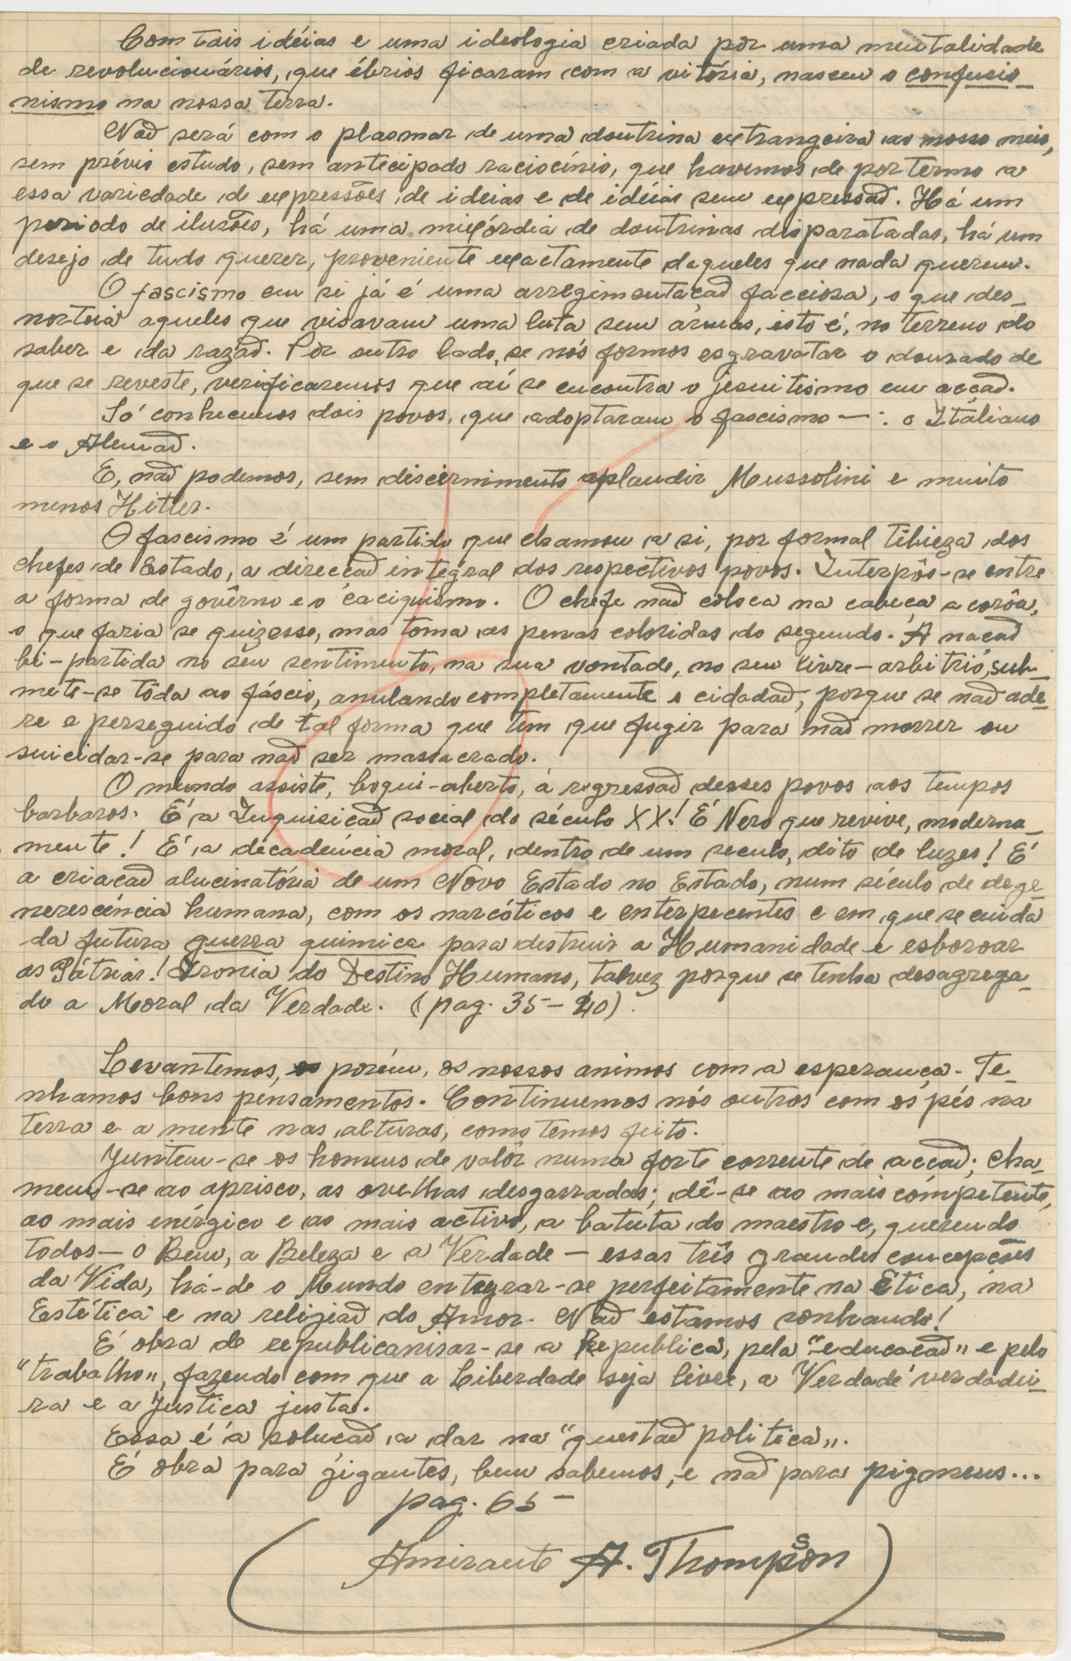 Com tais idéias e uma ideologia criada por uma mentalidade
de revolucionários, que ébrios ficaram com a vitória, nasceu o confusio-
nismo na nossa terra.
Não será com o plasmar de uma doutrina extrangeira ao nosso meio,
sem prévio estudo, sem antecipado raciocínio, que havemos de por termo a
essa variedade de expressões de ideias e de idéias sem expressão. Há um
periodo de ilusões, há uma mixórdia de doutrinas disparatadas, há um
desejo de tudo querer, proveniente exactamente daqueles que nada querem.
O fascismo em si já é uma arregimentação facciosa, o que des-
norteia aqueles que visavam uma luta sem armas, isto é, no terreno do
saber e da razão. Por outro lado, se nós formos esgravatar o dourado de
que se reveste, verificaremos que aí se encontra o jesuitismo em acção.
Só conhecemos dois povos, que adoptaram o fascismo — : o Italiano
e o Alemão.
E, não podemos, sem discernimento aplaudir Mussolini e muito
menos Hitler.
O fascismo é um partido que chamou a si, por formal tibieza dos
chefes de Estado, a direcção integral dos respectivos povos. Interpôs-se entre
a forma de govêrno e o caciquismo. O chefe não coloca na cabeça a corôa,
o que faria se quizesse, mas toma as penas coloridas do segundo. A nação
bi-partida no seu sentimento, na sua vontade, no seu livre-arbitrio, sub-
mete-se tôda ao fáscio, anulando completamente o cidadão, porque se não ade-
re e perseguido de tal forma que tem que fugir para não morrer ou
suicidar-se para não ser massacrado.
O mundo assiste, boqui-aberto, á regressão desses povos aos tempos
barbaros. É a Inquisição social do século XX! É Nero que revive, moderna-
mente! É a decadência moral, dentro de um seculo, dito de luzes! É
a criação alucinatória de um Novo Estado no Estado, num século de dege-
nerescência humana, com os narcóticos e enterpecentes e em que se cuida
da futura guerra quimica para destruir a Humanidade e esboroar
as Pátrias! Ironia do Destino Humano, talvez porque se tenha desagrega-
do a Moral da Verdade. (pag. 35-40).
Levantemos, porém, os nossos animos com a esperança. Te-
nhamos bons pensamentos. Continuemos nós outros com os pés na
terra e a mente nas alturas, como temos feito.
Juntem-se os homens de valôr numa forte corrente de acção; cha-
mem-se ao aprisco, as ovelhas desgarradas; dê-se ao mais competente,
ao mais enérgico e ao mais activo, a batuta do maestro e, querendo
todos — o Bem, a Beleza e a Verdade — essas três grandes concepções
da Vida, há-de o Mundo entegrar-se perfeitamente na Ética, na
Estética e na religião do Amor. Não estamos sonhando!
É obra de republicanisar-se a Republica, pela "educação" e pelo
"trabalho", fazendo com que a Liberdade seja livre, a Verdade verdadei-
ra e a Justiça justa.
Essa é a solução a dar na "questão politica".
É obra para gigantes, bem sabemos, e não para pigmeus...
pag. 65-
(Amirante A. Thompson)